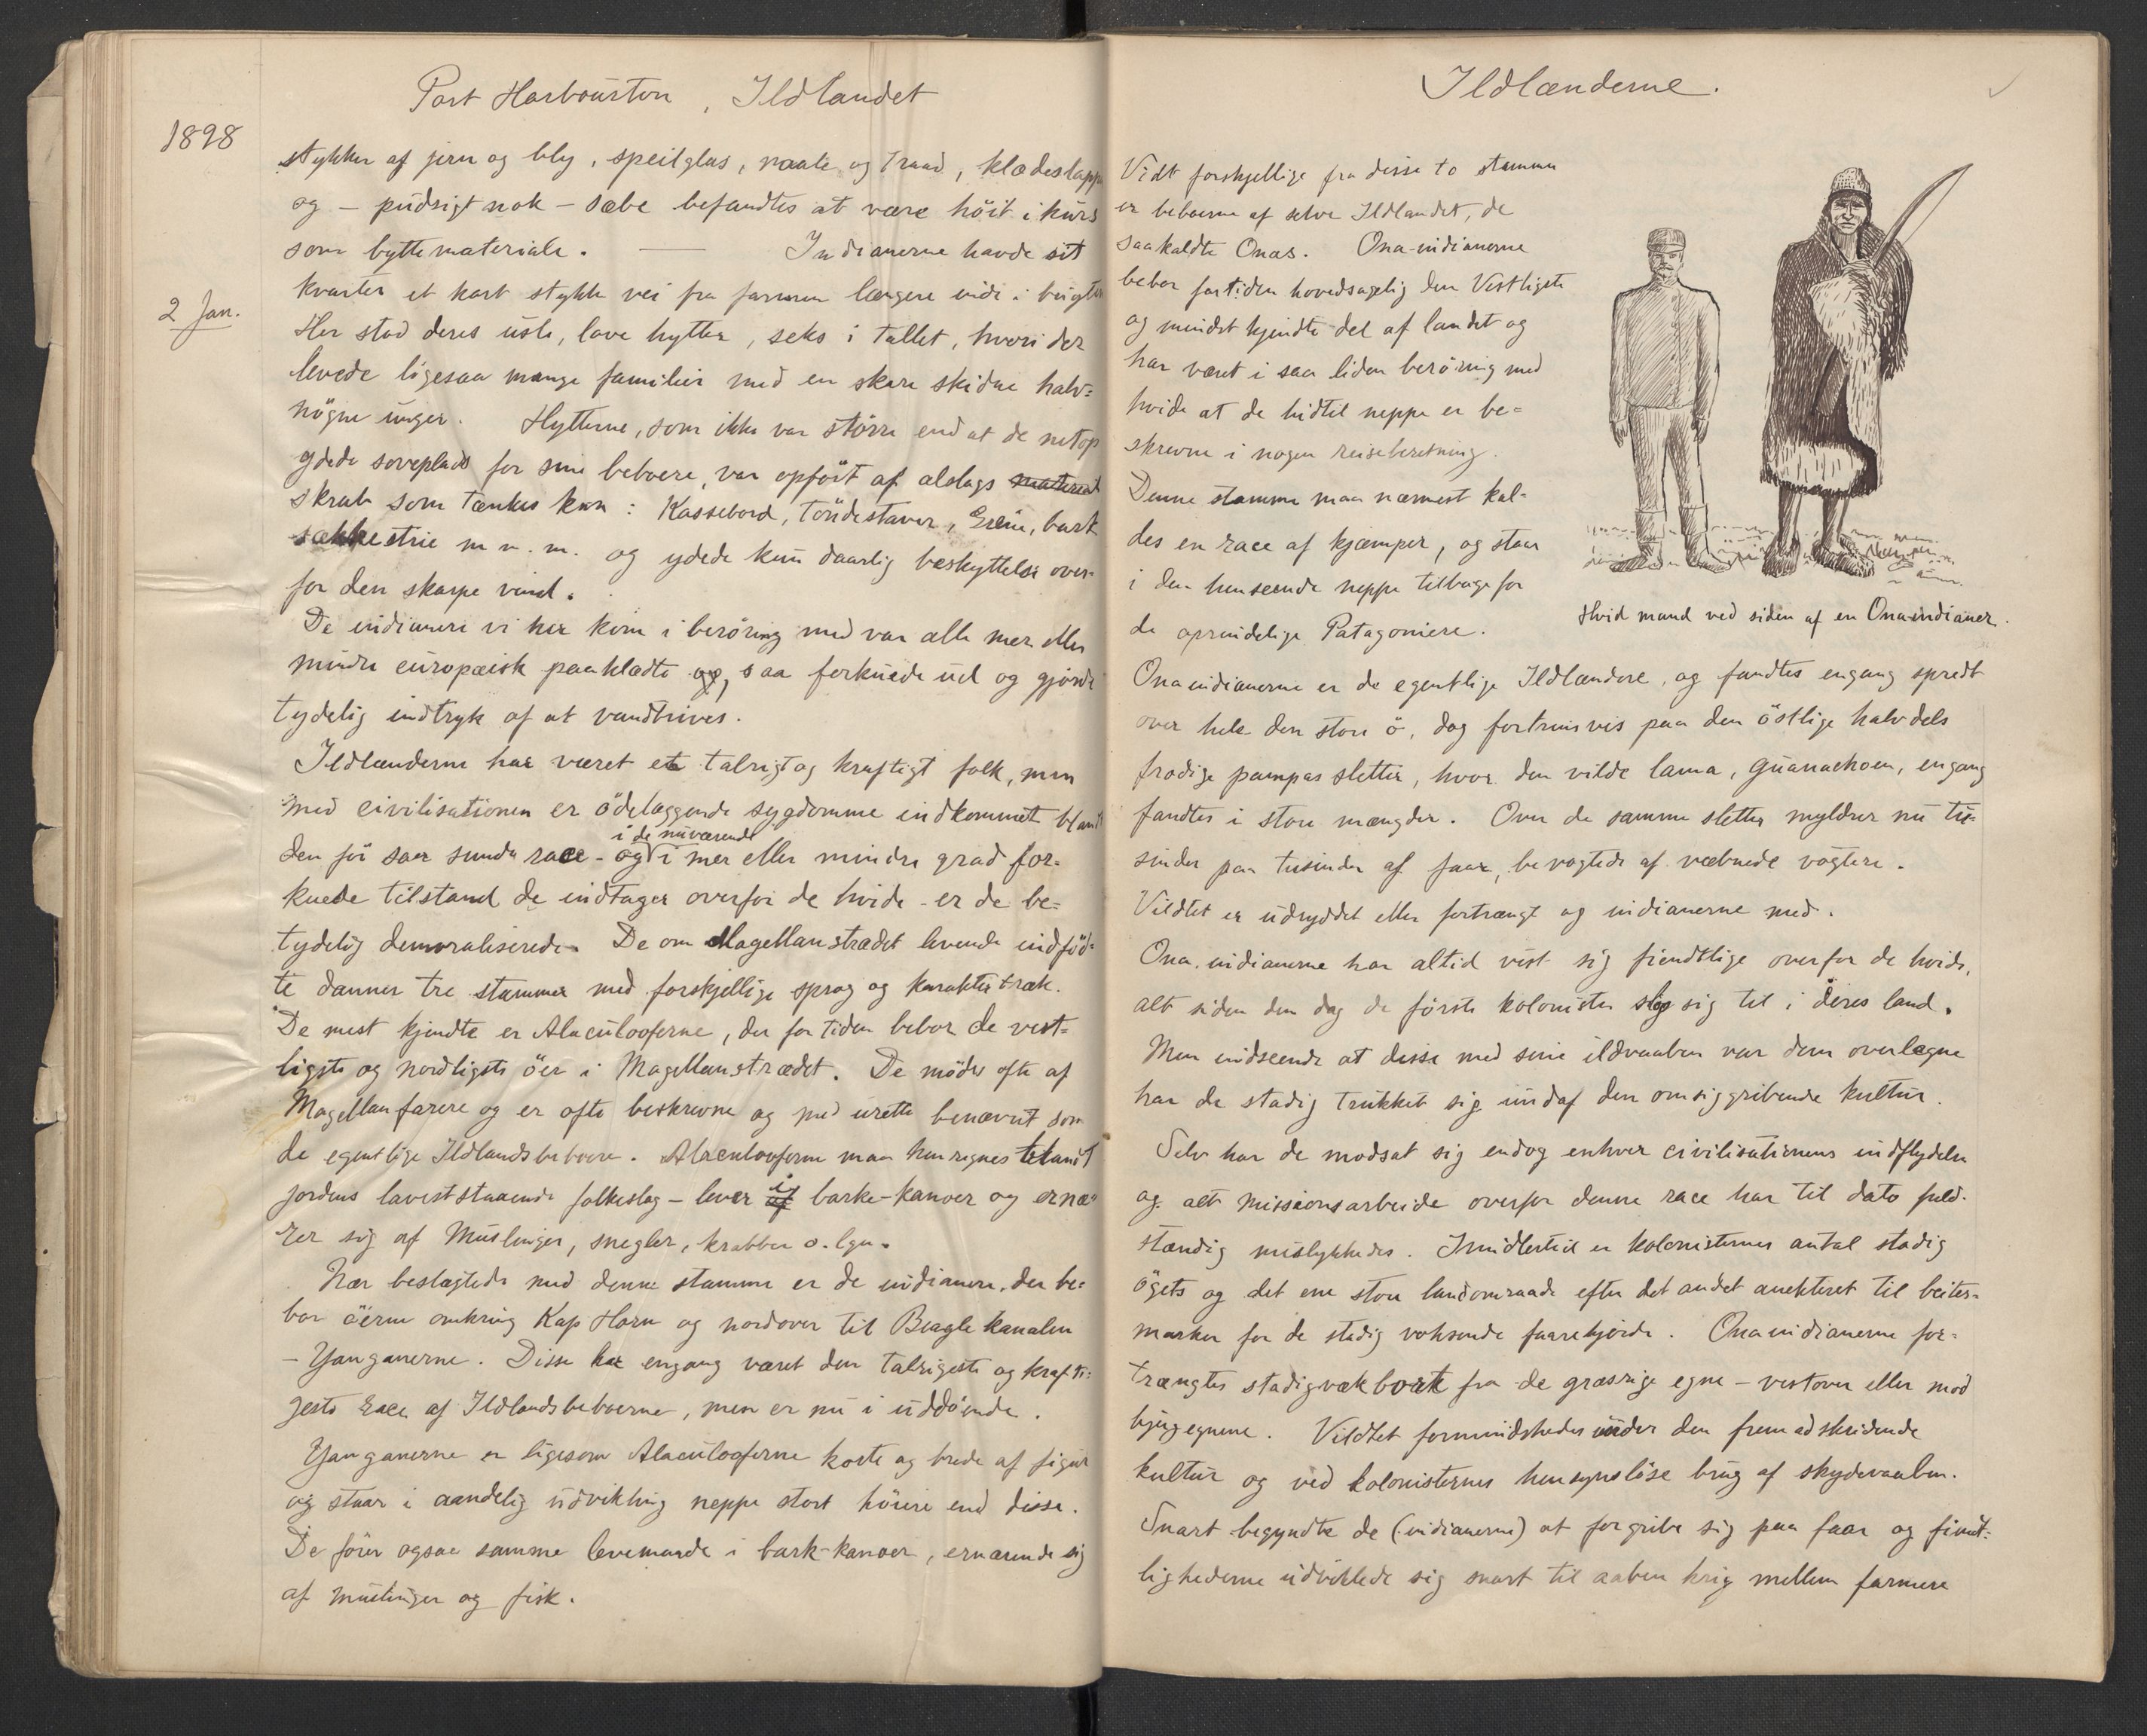 Port Harbourton, Ildlandet
1898
stykker af jern og bly, speilglas, naale og traad, klædeslapper
og – pudsigt nok – sæbe befandtes at være höit i kurs
som byttemateriale. — Indianerne havde sit
2 Jan.
kvarter et kort stykke vei fra farmen længere inde i bugten
Her stod deres usle, lave hytter, seks i tallet, hvori der
levede ligesaa mange familier med en skare skidne halv=
nögne unger. Hytterne, som ikke var större end at de netop
ydede soveplads for sine beboere, var opfört af alslags material
skrab som tænkes kan: Kassebord, töndestaver, Grene, bark
sækkestrie m. m. og ydede kun daarlig beskyttelse over=
for den skarpe vind.
De indianere vi her kom i beröring med var alle mer eller
mindre europæisk paaklædte og, saa forkuede ud og gjorde
tydelig indtryk af at vantrives.
Ildlænderne har været et talrigt og kraftigt folk, men
med civilisationen er ödelæggende sygdomme indkommet blandt
i de nuværende
den för saa sunde race – og i mer eller mindre grad for-
kuede tilstand de indtager overfor de hvide – er de be=
tydelig demoraliserede. De om Magellanstrædet levende indföd=
te danner tre stammer med forskjellige sprog og karaktertræk.
De mest kjendte er Alaculooferne, der for tiden bebor de vest=
ligste og nordligste öer i Magellanstrædet. De mödes ofte af
Magellanfarere og er ofte beskrevne og med urette benævnt som
de egentlige Ildlandsbeboere. Alaculooferne maa henregnes blandt
jordens laveststaaende folkeslag – lever af i barke-kanoer og ernæ=
rer sig af Muslinger, snegler, krabber o. lgn.
Nær beslægtede med denne stamme er de indianere, der be=
bor öerne omkring Kap Horn og nordover til Beagle kanalen
– Yanganerne. Disse har engang været den talrigeste og krafti=
geste race af Ildlandsbeboerne, men er nu i uddöende.
Yanganerne er ligesom Alaculooferne korte og brede af figur
og staar i aandelig udvikling neppe stort höiere end disse.
De förer ogsaa samme levemaade i bark-kanoer, ernærende sig
af muslinger og fisk.
Ildlænderne.
Vidt forskjellige fra disse to stammer
er beboerne af selve Ildlandet, de
saakaldte Onas. Ona-indianerne
bebor fortiden hovedsagelig den Vestligste
og mindst kjendte del af landet og
har været i saa liden beröring med
hvide at de hidtil neppe er be=
skrevne i nogen reiseberetning.
Denne stamme maa nærmest kal=
des en race af kjæmper, og staar
i den henseende neppe tilbage for
de oprindelige Patagoniere.
Hvid mand ved siden af en Onaindianer.
Onaindianerne er de egentlige Ildlændere, og fandtes engang spredt
over hele den store ö, dog fortrinsvis paa den östlige halvdels
frodige pampas sletter, hvor den vilde lama, guanachoen, engang
fandtes i store mængder. Over de samme sletter myldrer nu tu=
sinder paa tusinder af faar, bevogtede af væbnede vogtere.
Vildtet er udryddet eller fortrængt og indianerne med.
Ona-indianerne har altid vist sig fiendtlige overfor de hvide,
alt siden den dag de förste kolonister slog sig til i deres land.
Men indseende at disse med sine ildvaaben var dem overlegne
har de stadig trukket sig undaf den omsiggribende kultur.
Selv har de modsat sig endog enhver civilisationens indflydelse
og alt missionsarbeide overfor denne race har til dato fuld-
stændig mislykkedes. Imidlertid er kolonisternes antal stadig
ögets og det ene store landomraade efter det andet anekteret til beites=
marker for de stadig voksende faarehjorde. Onaindianerne for=
trængtes stadigvæk bort fra de græsrige egne – vestover eller mod
bjergegnene. Vildtet formindskedes under den fremadskridende
kultur og ved kolonisternes hensynslöse brug af skydevaaben.
Snart begyndte de (indianerne) at forgribe sig paa faar og fiendt=
lighederne udviklede sig snart til aaben krig mellem farmere